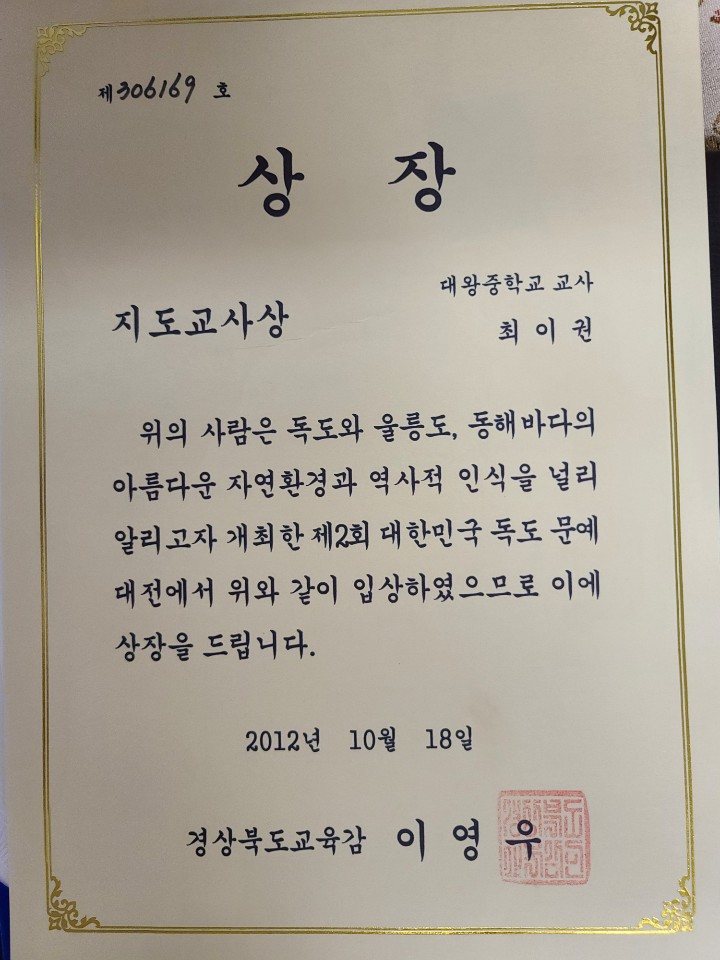 제306169 호
상 장
지도교사상
대왕중학교 교사
최 이 권
위의 사람은 독도와 울릉도, 동해바다의
아름다운 자연환경과 역사적 인식을 널리
알리고자 개최한 제2회 대한민국 독도 문예
대전에서 위와 같이 입상하였으므로 이에
상장을 드립니다.
2012년 10월 18일
경상북도교육감 이 영 우